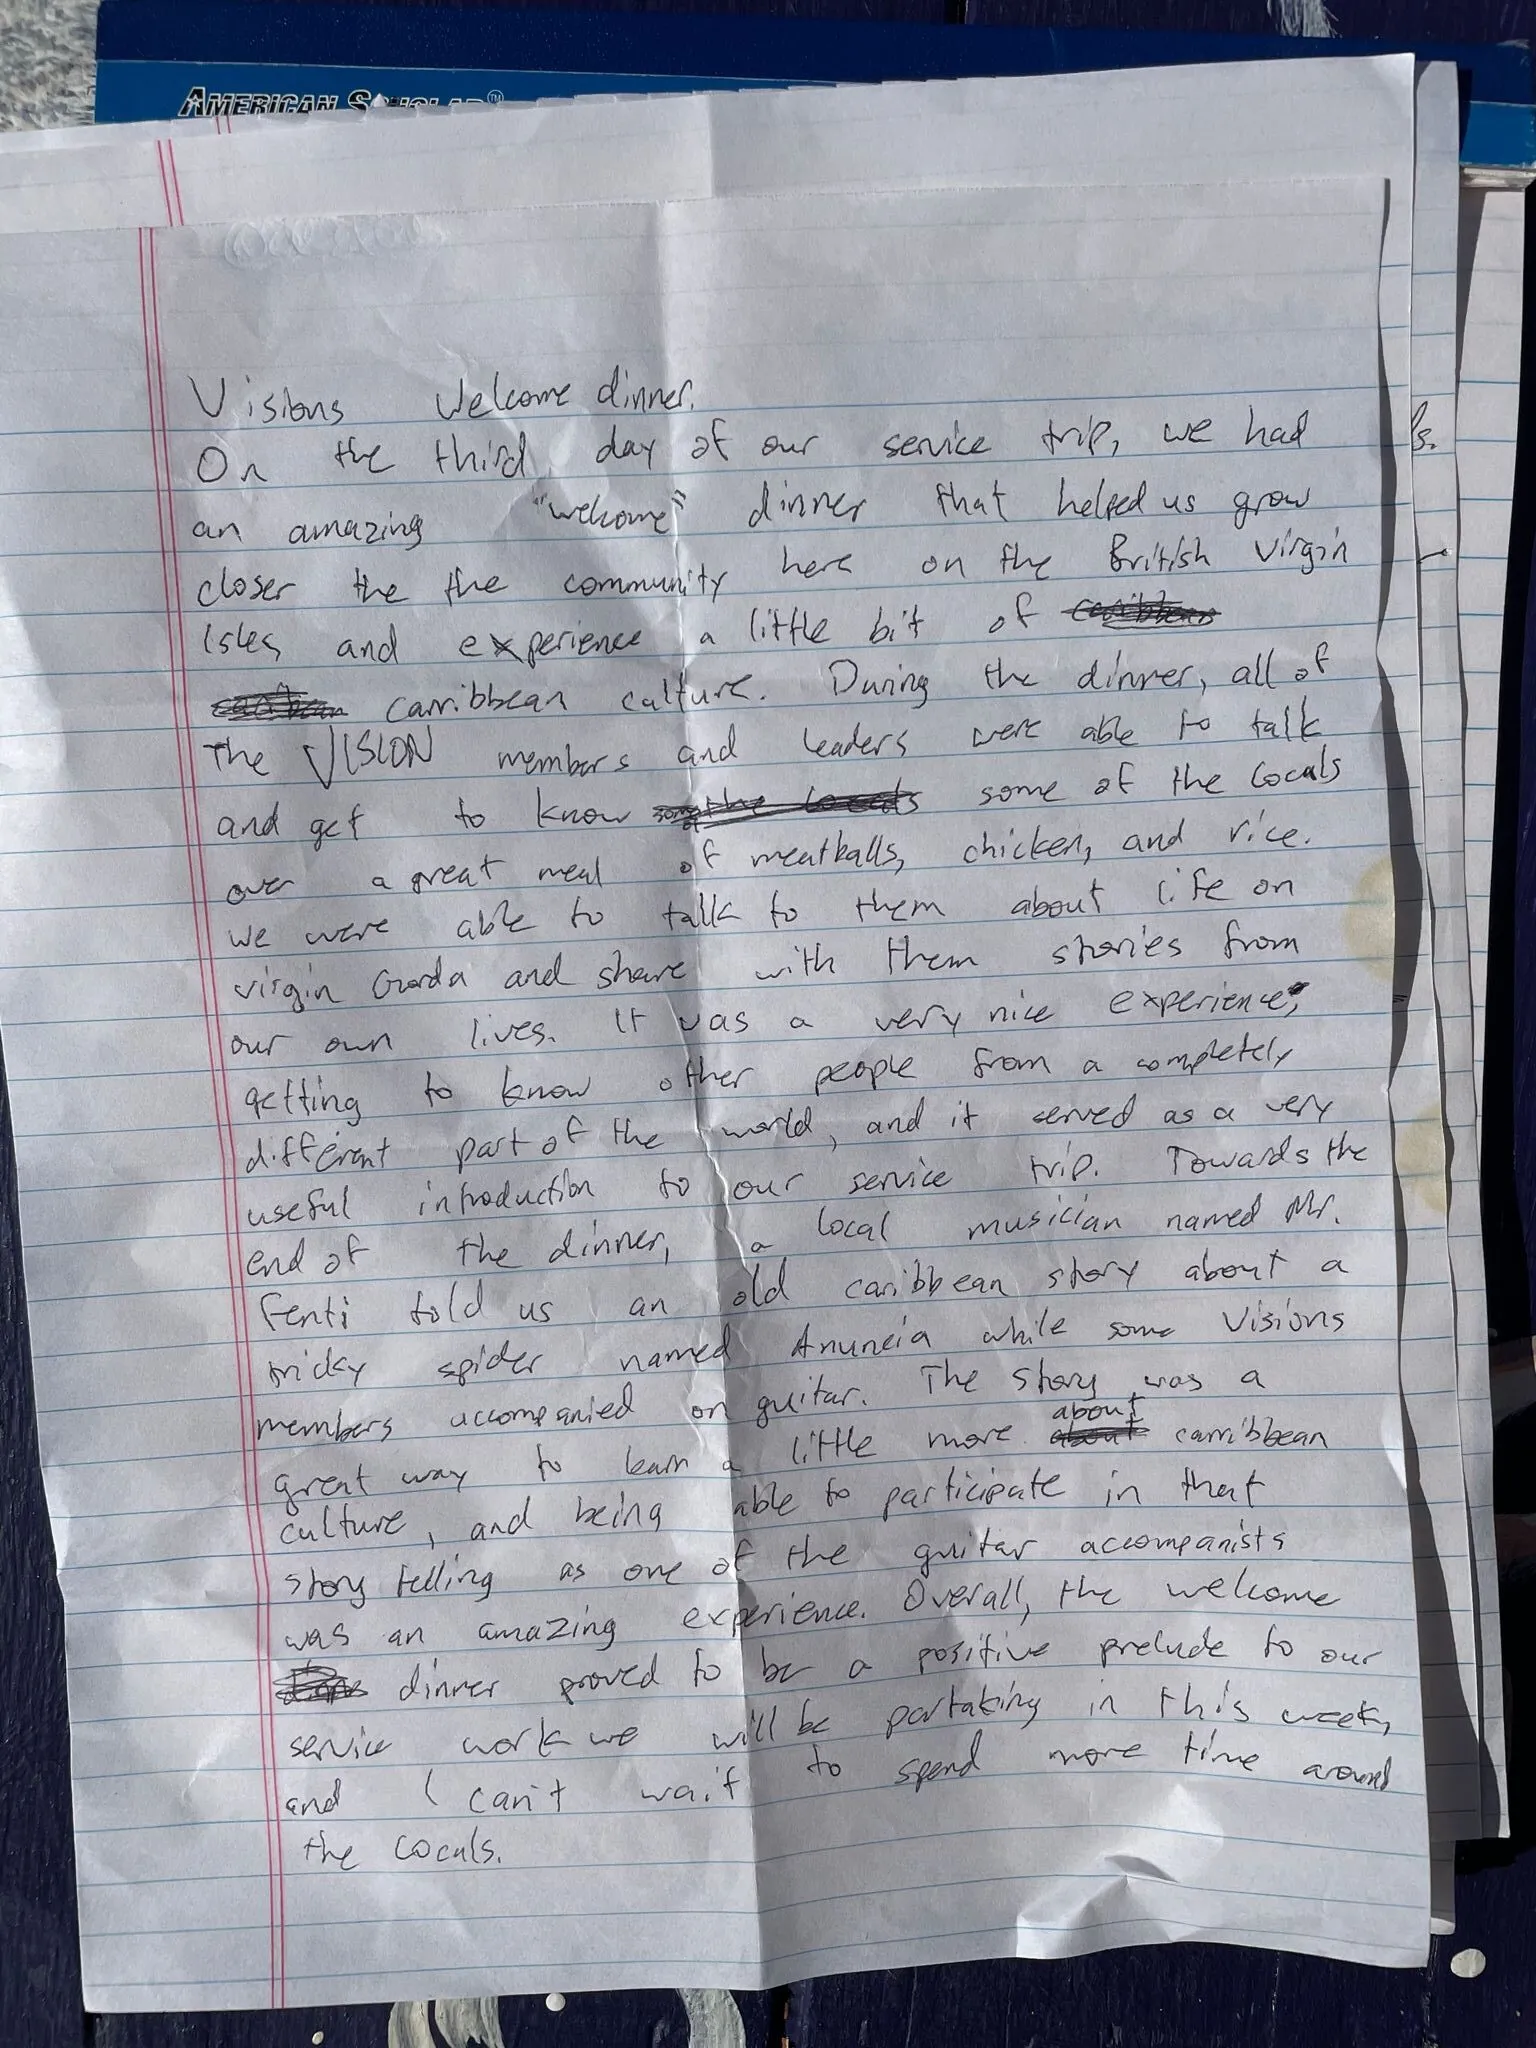 AMERICAN SCHOLAR™
Visions Welcome dinner.
On the third day of our service trip, we had
an amazing "welcome" dinner that helped us grow
closer the the community here on the British Virgin
Isles and experience a little bit of caribbean
carribbean culture. During the dinner, all of
The VISION members and leaders were able to talk
and get to know some of the locals some of the locals
over a great meal of meatballs, chicken, and rice.
we were able to talk to them about life on
virgin Gorda and share with them stories from
our own lives. It was a very nice experience,
getting to know other people from a completely
different part of the world, and it served as a very
useful introduction to our service trip. Towards the
end of the dinner, a local musician named Mr.
Fenti told us an old caribbean story about a
tricky spider named Anuncia while some Visions
members accompanied on guitar. The story was a
great way to learn a little more about about carribbean
culture, and being able to participate in that
story telling as one of the guitar accompanists
was an amazing experience. Overall, the welcome
dinner proved to be a positive prelude to our
service work we will be partaking in this week,
and I can't wait to spend more time around
the locals.
ls.